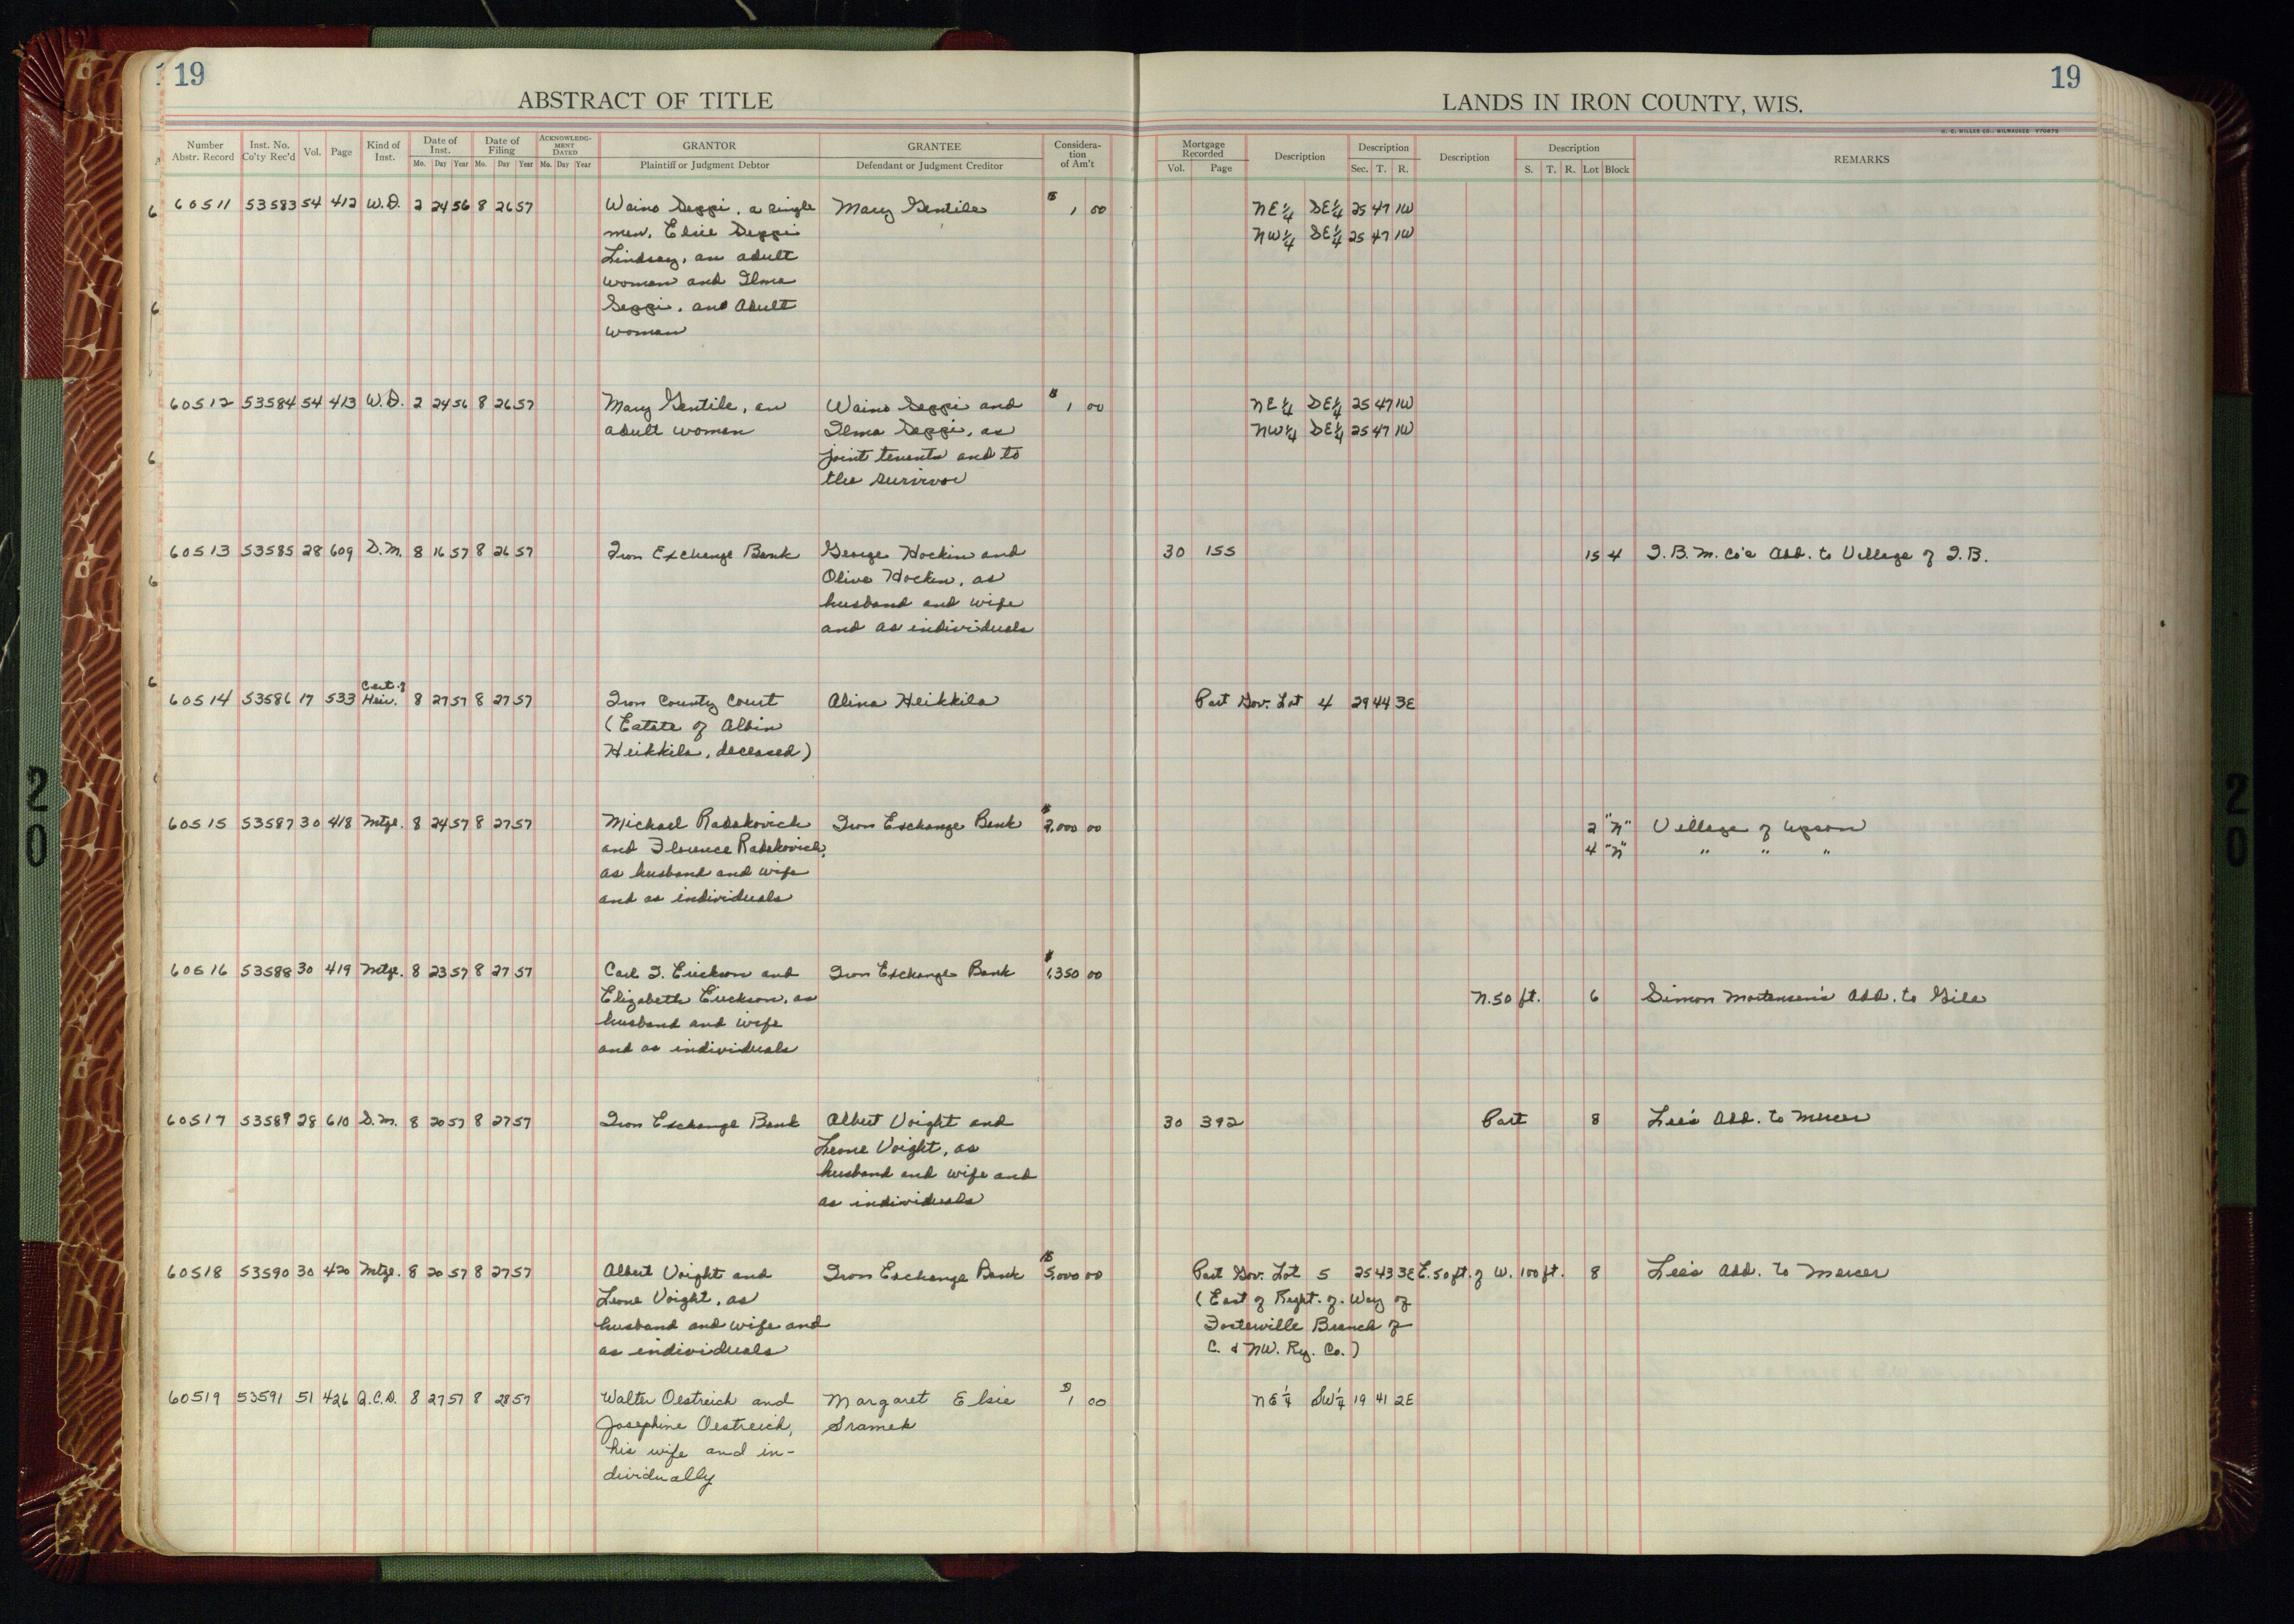 19
ABSTRACT OF TITLE
LANDS IN IRON COUNTY, WIS.
19
H. C. MILLER CO., MILWAUKEE
Number Abstr. Record | Inst. No. Co'ty Rec'd | Vol. | Page | Kind of Inst. | Date of Inst. Mo. Day Year | Date of Filing Mo. Day Year | ACKNOWLEDGMENT DATED Mo. Day Year | GRANTOR Plaintiff or Judgment Debtor | GRANTEE Defendant or Judgment Creditor | Consideration of Am't | Mortgage Recorded Vol. Page | Description | Description Sec. T. R. | Description | Description S. T. R. Lot Block | REMARKS
60511 53583 54 412 W.D. 2 24 56 8 26 57 Waino Seppi, a single Mary Gentile $1 00 NE¼ SE¼ 25 47 1W
men, Elsie Seppi NW¼ SE¼ 25 47 1W
Lindsay, an adult
woman and Ilma
Seppi, and adult
woman
60512 53584 54 413 W.D. 2 24 56 8 26 57 Mary Gentile, an Waino Seppi and $1 00 NE¼ SE¼ 25 47 1W
adult woman Ilma Seppi, as NW¼ SE¼ 25 47 1W
joint tenents and to
the survivor
60513 53585 28 609 D.M. 8 16 57 8 26 57 Iron Exchange Bank George Hockin and 30 155 15 4 I.B.M. Co's Add. to Village of I.B.
Olive Hockin, as
husband and wife
and as individuals
60514 53586 17 533 Cert. of Heir. 8 27 57 8 27 57 Iron County Court Alina Heikkila Part Gov. Lot 4 29 44 3E
(Estate of Albin
Heikkila, deceased)
60515 53587 30 418 Mtge. 8 24 57 8 27 57 Michael Radakovich Iron Exchange Bank $2,000 00 2 "N" Village of Upson
and Florence Radakovich, 4 "N" " " "
as husband and wife
and as individuals
60516 53588 30 419 Mtge. 8 23 57 8 27 57 Carl I. Erickson and Iron Exchange Bank $1,350 00
Elizabeth Erickson, as N. 50 ft. 6 Simon Mortensen's Add. to Gile
husband and wife
and as individuals
60517 53589 28 610 D.M. 8 20 57 8 27 57 Iron Exchange Bank Albert Voight and 30 392 Part 8 Lee's Add. to Mercer
Leone Voight, as
husband and wife and
as individuals
60518 53590 30 420 Mtge. 8 20 57 8 27 57 Albert Voight and Iron Exchange Bank $5,000 00 Part Gov. Lot 5 25 43 3E E. 50 ft. of W. 100 ft. 8 Lee's Add. to Mercer
Leone Voight, as (East of Right-of-Way of
husband and wife and Fosterville Branch of
as individuals C. & NW. Ry. Co.)
60519 53591 51 426 Q.C.D. 8 27 57 8 28 57 Walter Oestreich and Margaret Elsie $1 00 NE¼ SW¼ 19 41 2E
Josephine Oestreich, Sramek
his wife and in-
dividually
20
20